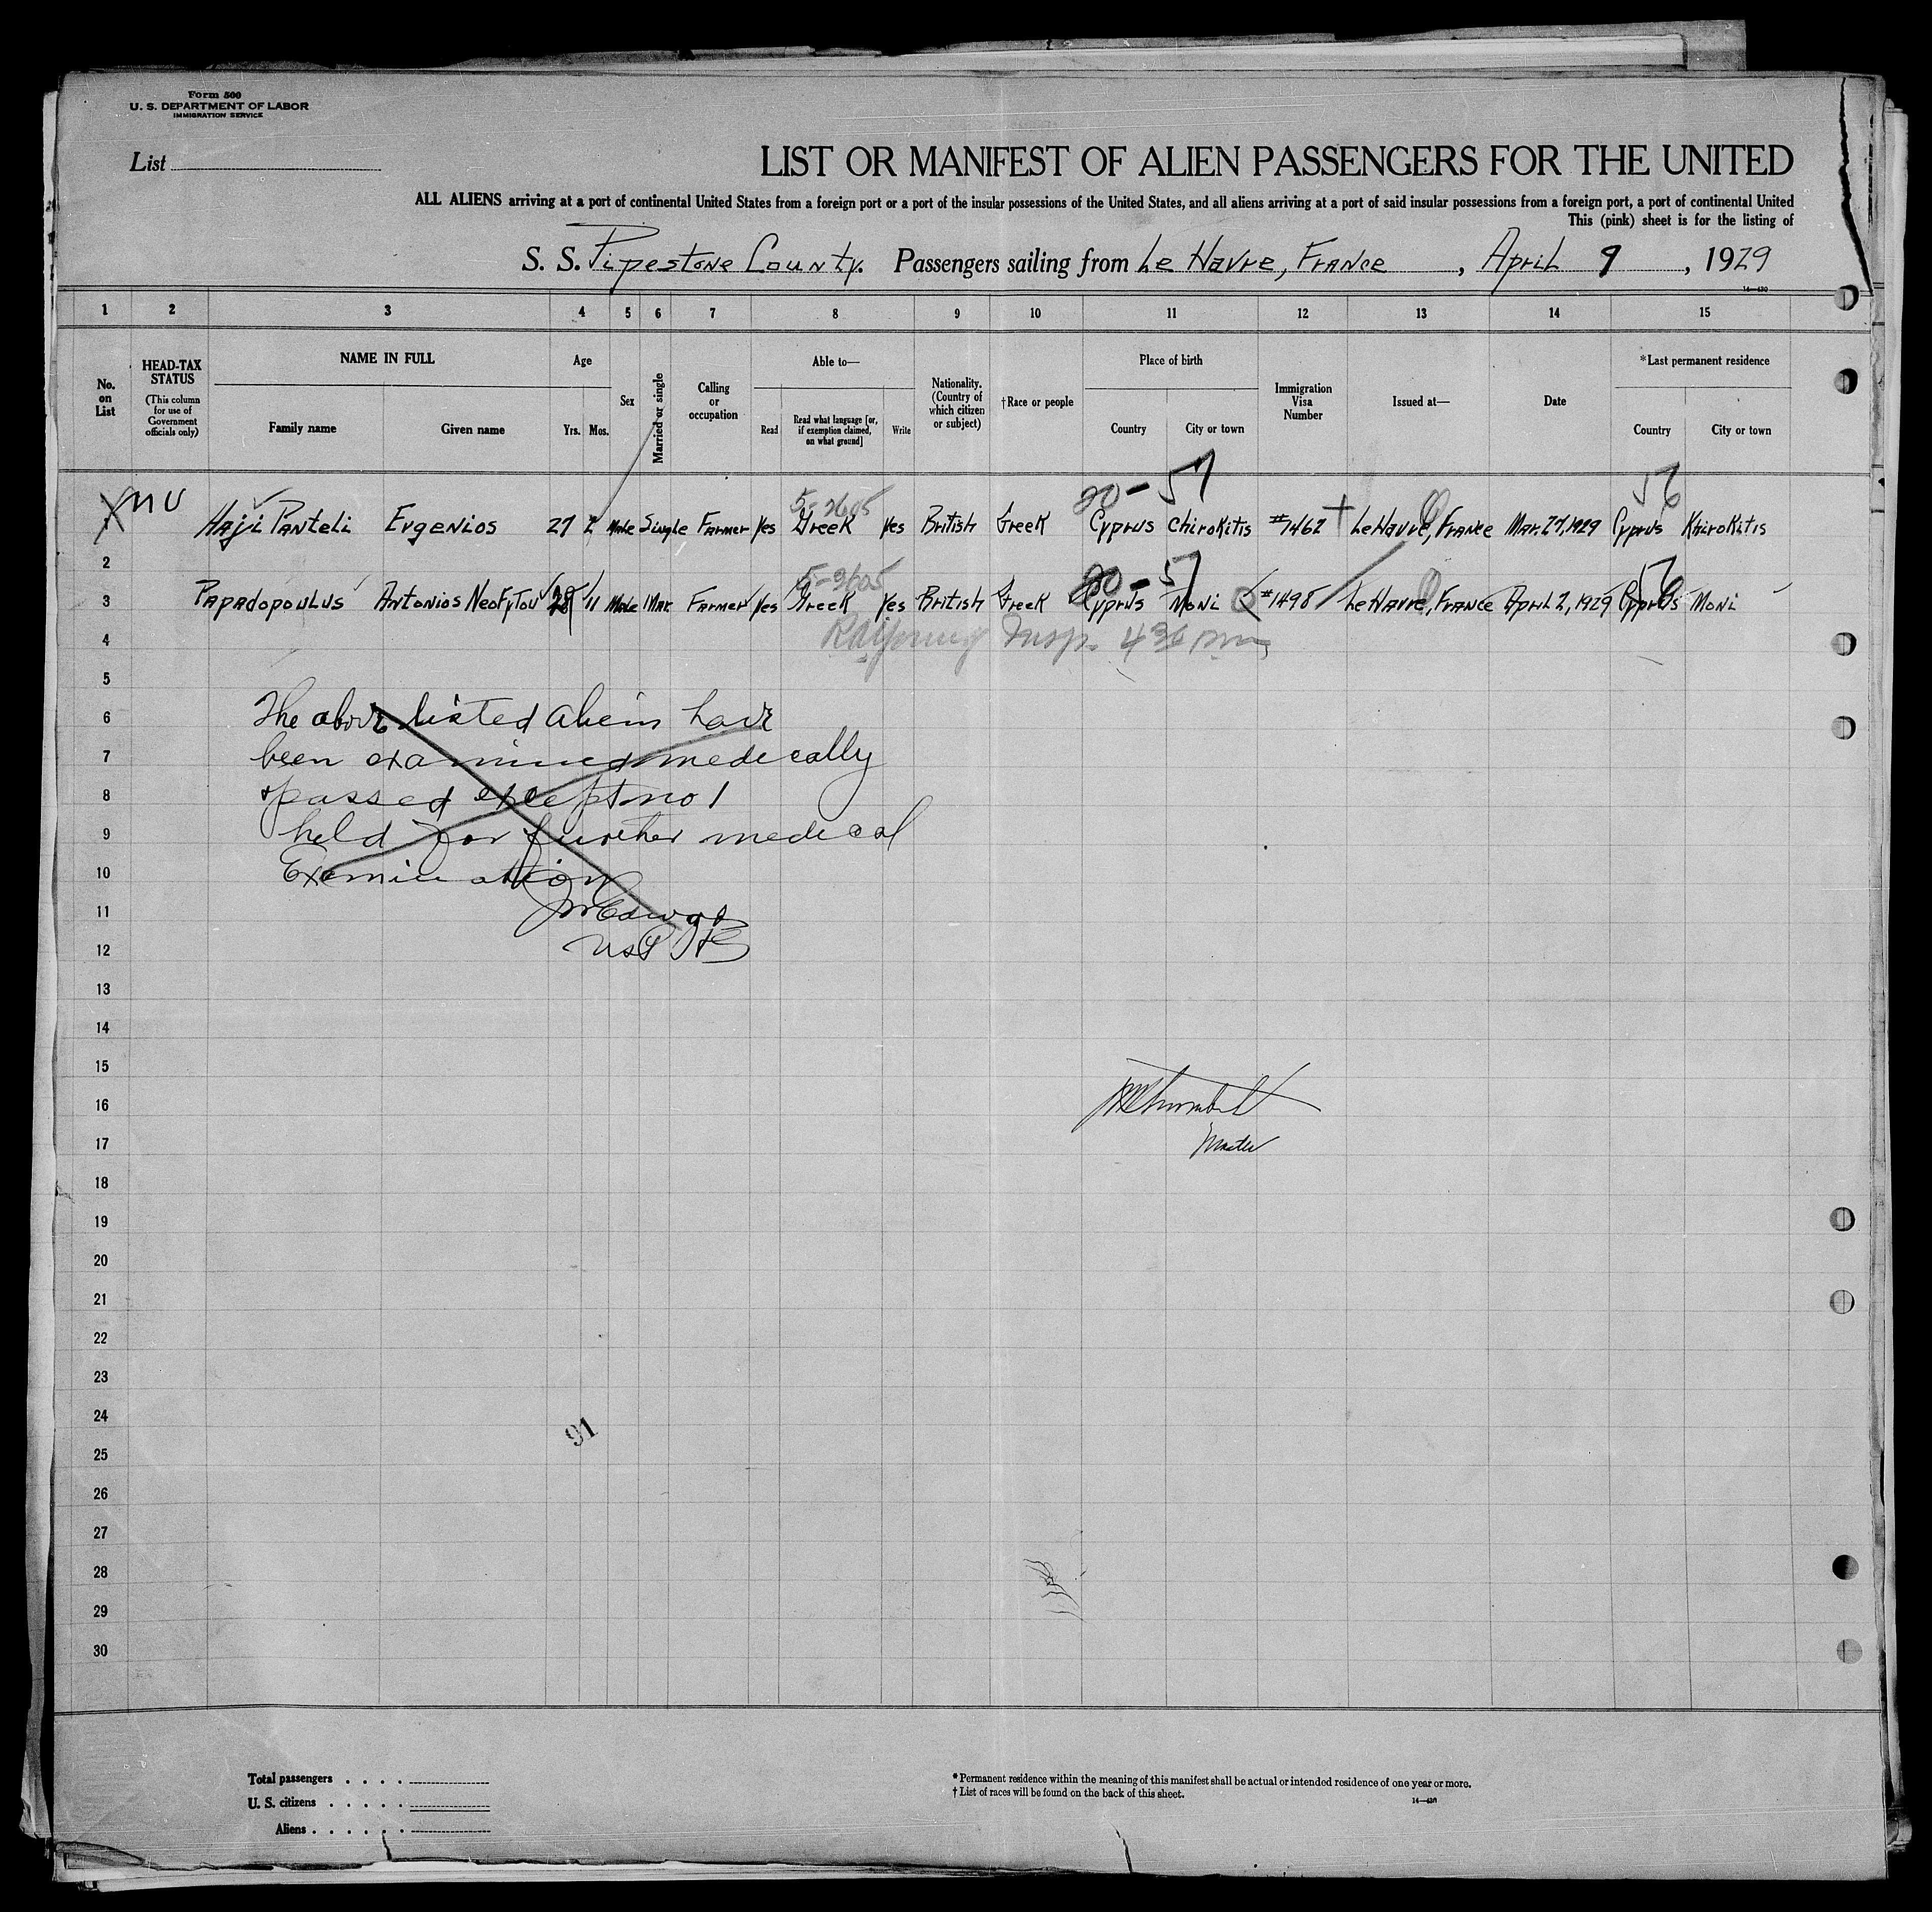 Form 500
U. S. DEPARTMENT OF LABOR
IMMIGRATION SERVICE
List
LIST OR MANIFEST OF ALIEN PASSENGERS FOR THE UNITED
ALL ALIENS arriving at a port of continental United States from a foreign port or a port of the insular possessions of the United States, and all aliens arriving at a port of said insular possessions from a foreign port, a port of continental United
This (pink) sheet is for the listing of
S. S. Pipestone County. Passengers sailing from Le Havre, France, April 9, 1929
14—430
1 2 3 4 5 6 7 8 9 10 11 12 13 14 15
No. on List
HEAD-TAX STATUS (This column for use of Government officials only)
NAME IN FULL Family name Given name
Age Yrs. Mos.
Sex
Married or single
Calling or occupation
Able to— Read Read what language [or, if exemption claimed, on what ground] Write
Nationality. (Country of which citizen or subject)
†Race or people
Place of birth Country City or town
Immigration Visa Number
Issued at—
Date
*Last permanent residence Country City or town
20 - 57 56
1 Haji Panteli Evgenios 27 Male Single Farmer Yes Greek Yes British Greek Cyprus Chirokitis #1462 Le Havre, France Mar. 27, 1929 Cyprus Khirokitis
2
20 - 57 56
3 Papadopoulus Antonios Neofytou 28 11 Male Mar. Farmer Yes Greek Yes British Greek Cyprus Moni #1498 Le Havre, France April 2, 1929 Cyprus Moni
4 Insp. 4 30 pm
5
6 The above listed aliens have
7 been examined medically
8 & passed except no 1
9 held for further medical
10 Examination
11
12 USPHS
13
14
15
16
17 Master
18
19
20
21
22
23
24
91
25
26
27
28
29
30
Total passengers . . . .
U. S. citizens . . . . .
Aliens . . . . . .
* Permanent residence within the meaning of this manifest shall be actual or intended residence of one year or more.
† List of races will be found on the back of this sheet.
14—430